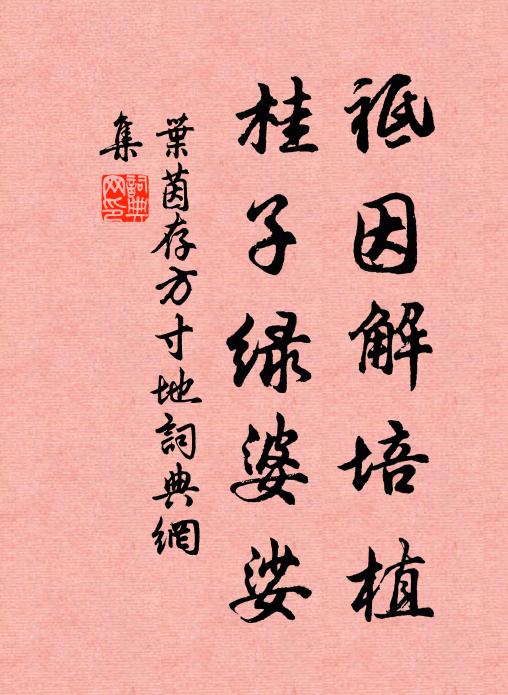 祗因解培植
桂子绿婆娑
葉茵存方寸地詞典網
集
詞典
网印